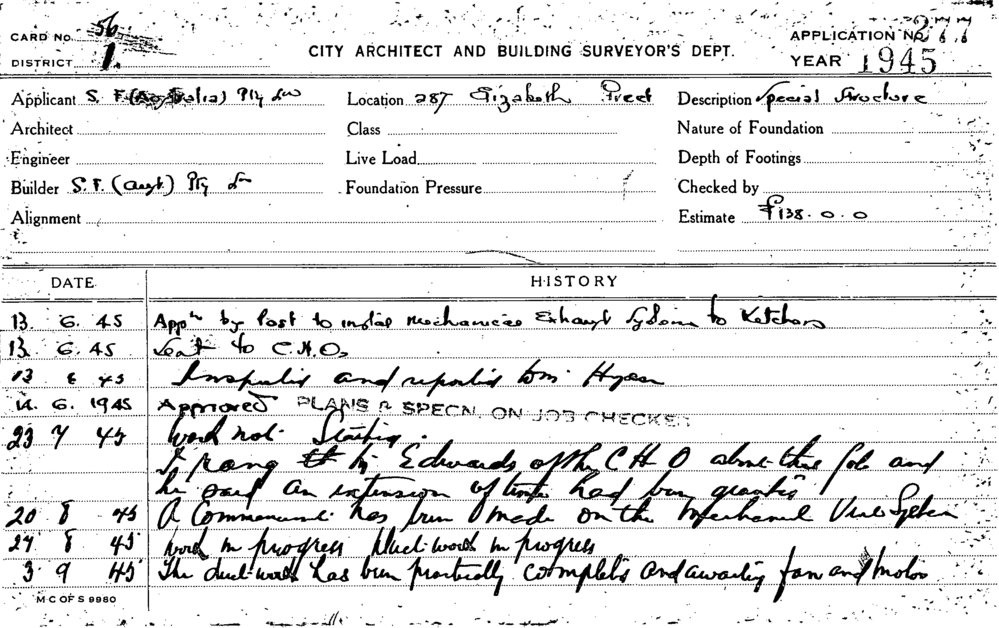 CARD No. 56
APPLICATION No. 277
DISTRICT 1.
CITY ARCHITECT AND BUILDING SURVEYOR'S DEPT.
YEAR 1945
Applicant S. F. (Australia) Pty Ltd
Location 287 Elizabeth Street
Description Special Structure
Architect
Class
Nature of Foundation
Engineer
Live Load
Depth of Footings
Builder S. F. (Aust.) Pty Ltd
Foundation Pressure
Checked by
Alignment
Estimate £138. 0. 0
DATE
HISTORY
13. 6. 45 Appn by Post to instal mechanical Exhaust System to Kitchen
13. 6. 45 Sent to C.H.O.
13 6 45 Inspected and reported
14. 6. 1945 Approved PLANS & SPECN. ON JOB CHECKED
23 7 45 Work not Started.
I rang Mr Edwards of the C H O about this job and
he said an extension of time had been granted
20 8 45 A Commencement has been made on the Mechanical Vent System
27 8 45 Work in progress Duct work in progress
3 9 45 The duct-work has been practically completed and awaiting fan and motor
M C OF S 9980